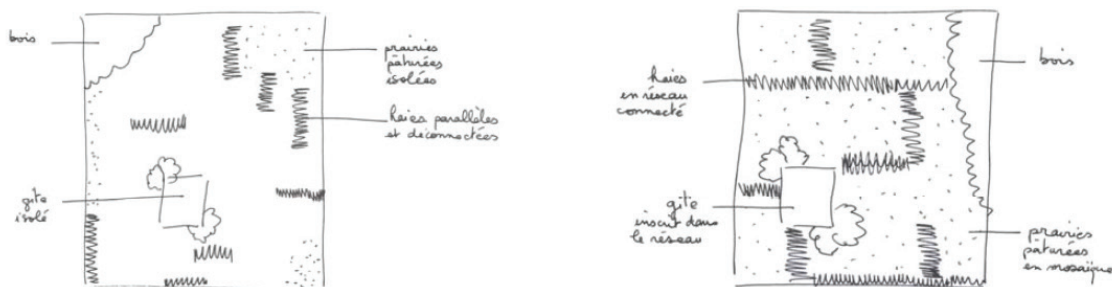 bois
prairies
pâturées
isolées
haies parallèles
et déconnectées
gîte
isolé
haies
en réseau
connecté
bois
gîte
inscrit dans
le réseau
prairies
pâturées
en mosaïque